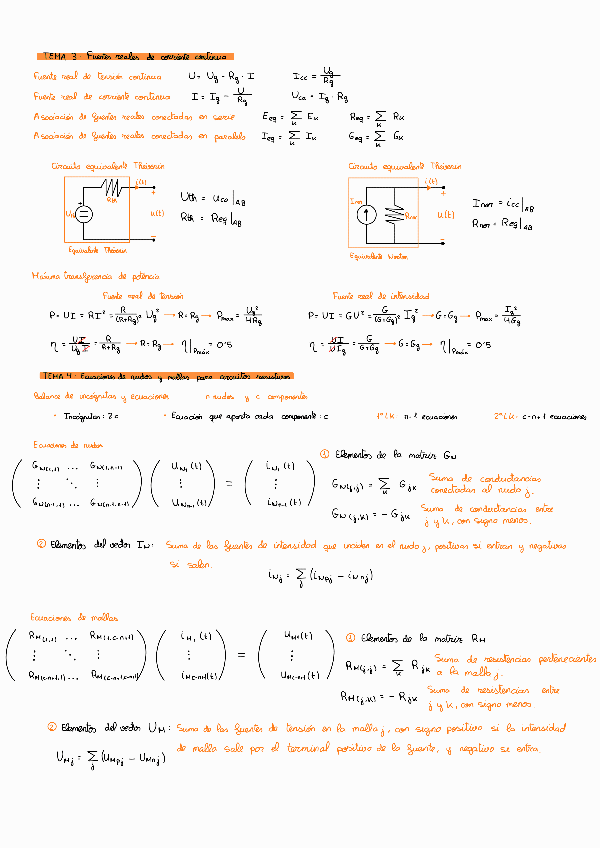 TEMA 3 - Fuentes reales de corriente continua
Fuente real de tensión continua U = Ug - Rg · I Icc = Ug/Rg
Fuente real de corriente continua I = Ig - U/Rg Uca = Ig · Rg
Asociación de fuentes reales conectadas en serie Eeq = Σ_K E_K Req = Σ_K R_K
Asociación de fuentes reales conectadas en paralelo Ieq = Σ_K I_K Geq = Σ_K G_K
Circuito equivalente Thévenin Circuito equivalente Thévenin
i(t) i(t)
Rth + Uth = uca|AB +
Inor = icc|AB
Uth u(t) Rth = Req|AB Inor Rnor u(t)
Rnor = Req|AB
Equivalente Thévenin Equivalente Norton
Máxima transferencia de potencia
Fuente real de tensión Fuente real de intensidad
P = UI = RI² = R/(R+Rg)² Ug² → R = Rg → Pmax = Ug²/4Rg P = UI = GU² = G/(G+Gg)² Ig² → G = Gg → Pmax = Ig²/4Gg
η = UI/UgI = R/(R+Rg) → R = Rg → η|Pmáx = 0'5 η = UI/UIg = G/(G+Gg) → G = Gg → η|Pmáx = 0'5
TEMA 4 - Ecuaciones de nudos y mallas para circuitos resistivos
Balance de incógnitas y ecuaciones n nudos y c componentes
· Incógnitas: 2c · Ecuación que aporta cada componente: c 1ª LK: n-1 ecuaciones 2ª LK: c-n+1 ecuaciones
Ecuaciones de nudos
① Elementos de la matriz GN
( GN(1,1) ... GN(1,n-1) ) ( UN1(t) ) ( iN1(t) )
( ⋮ ⋱ ⋮ ) ( ⋮ ) = ( ⋮ )
( GN(n-1,1) ... GN(n-1,n-1) ) ( UNn-1(t) ) ( iNn-1(t) )
GN(j,j) = Σ_K Gjk Suma de conductancias
conectadas al nudo j.
GN(j,k) = - Gjk Suma de conductancias entre
j y k, con signo menos.
② Elementos del vector IN: Suma de las fuentes de intensidad que inciden en el nudo j, positivas si entran y negativas
si salen.
iNj = Σ_j (iNpj - iNnj)
Ecuaciones de mallas
( RM(1,1) ... RM(1,c-n+1) ) ( iM1(t) ) ( uM1(t) )
( ⋮ ⋱ ⋮ ) ( ⋮ ) = ( ⋮ )
( RM(c-n+1,1) ... RM(c-n+1,c-n+1) ) ( iMc-n+1(t) ) ( uMc-n+1(t) )
① Elementos de la matriz RM
RM(j,j) = Σ_K Rjk Suma de resistencias pertenecientes
a la malla j.
RM(j,k) = - Rjk Suma de resistencias entre
j y k, con signo menos
② Elementos del vector UM: Suma de las fuentes de tensión en la malla j, con signo positivo si la intensidad
de malla sale por el terminal positivo de la fuente, y negativo si entra.
UMj = Σ_j (UMpj - UMnj)